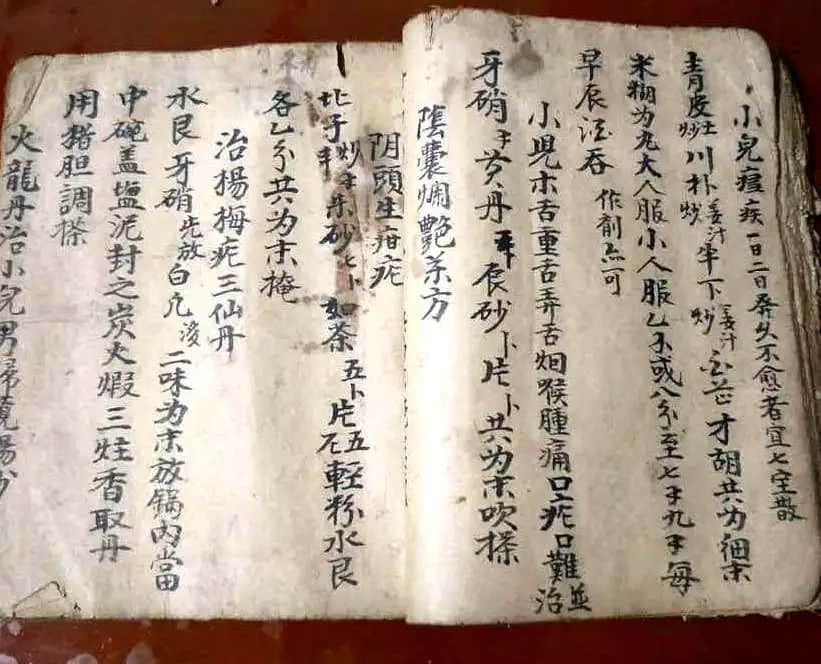 小兒瘟疾一日二日發久不愈者宜七宝散
青皮土炒川朴姜汁炒半下姜汁炒白芷才胡共为細末
米糊为丸大人服小人服乙分或八分至七分九分每
早辰酒吞 作劑亦可
小兒木舌重舌弄舌咽喉腫痛口疮口難治並
牙硝 黄丹 辰砂卜片卜共为末吹搽
陰囊爛艷茶方
阴頭生疳疮
北子炒 朱砂七卜如茶五卜片五輕粉水艮
各乙分共为末掩
治揚梅疮三仙丹
水艮牙硝先放白凡後二味为末放锅内當
中碗盖塩泥封之炭火煆三炷香取丹
用猪胆調搽
火龍丹治小兒男婦